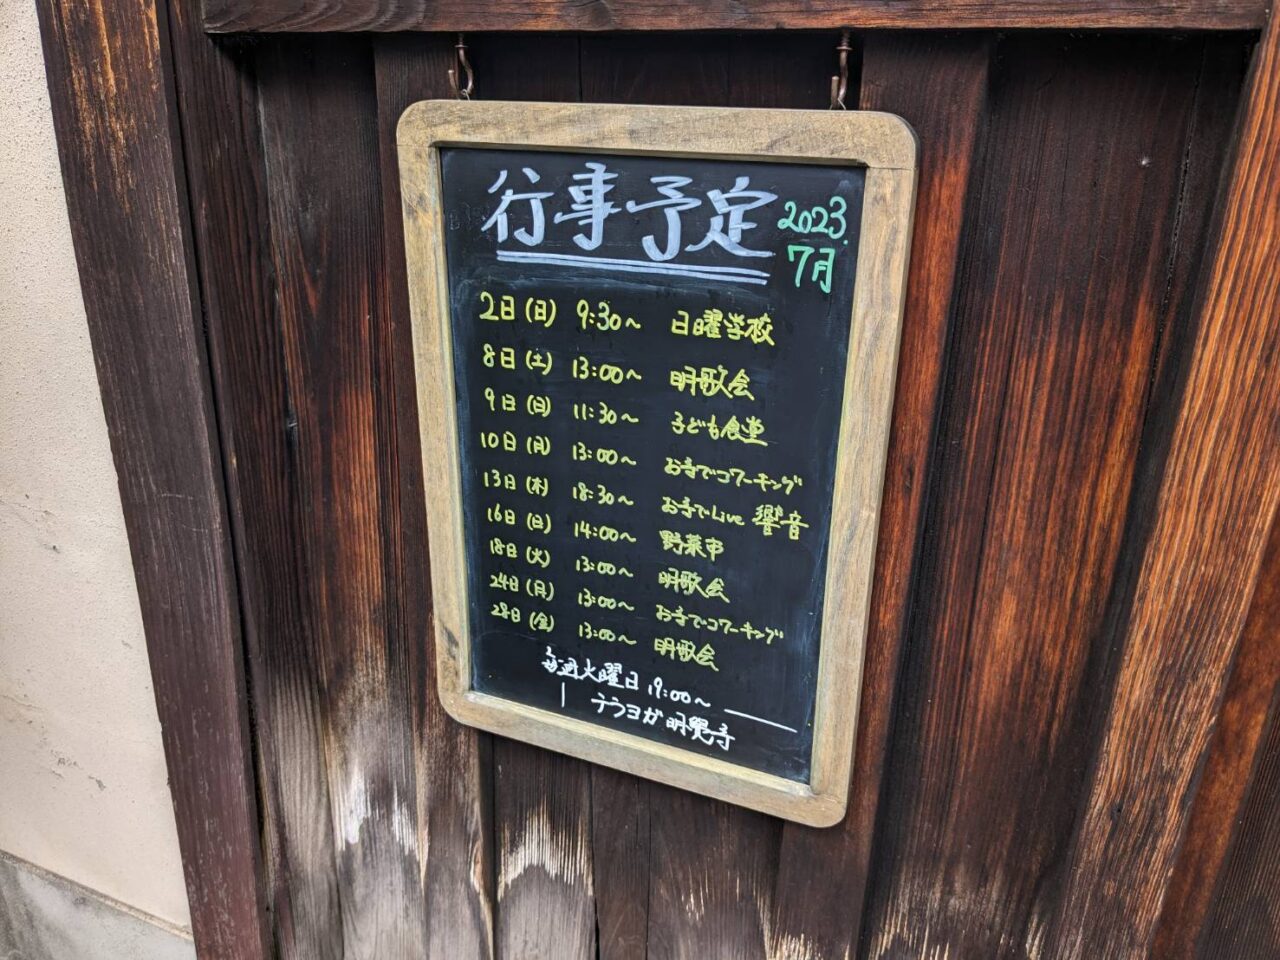 行事予定 2023.
7月
2日(日) 9:30〜 日曜学校
8日(土) 13:00〜 明歌会
9日(日) 11:30〜 子ども食堂
10日(月) 13:00〜 お寺でコワーキング
13日(木) 18:30〜 お寺でLive 響音
16日(日) 14:00〜 野菜市
18日(火) 13:00〜 明歌会
24日(月) 13:00〜 お寺でコワーキング
28日(金) 13:00〜 明歌会
毎週火曜日 19:00〜
テラヨガ明覺寺